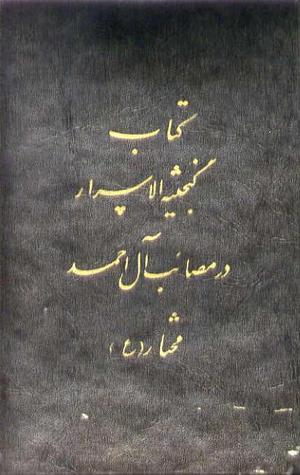 کتاب
گنجینه الاسرار
در مصائب آل احمد
مختار (ع)